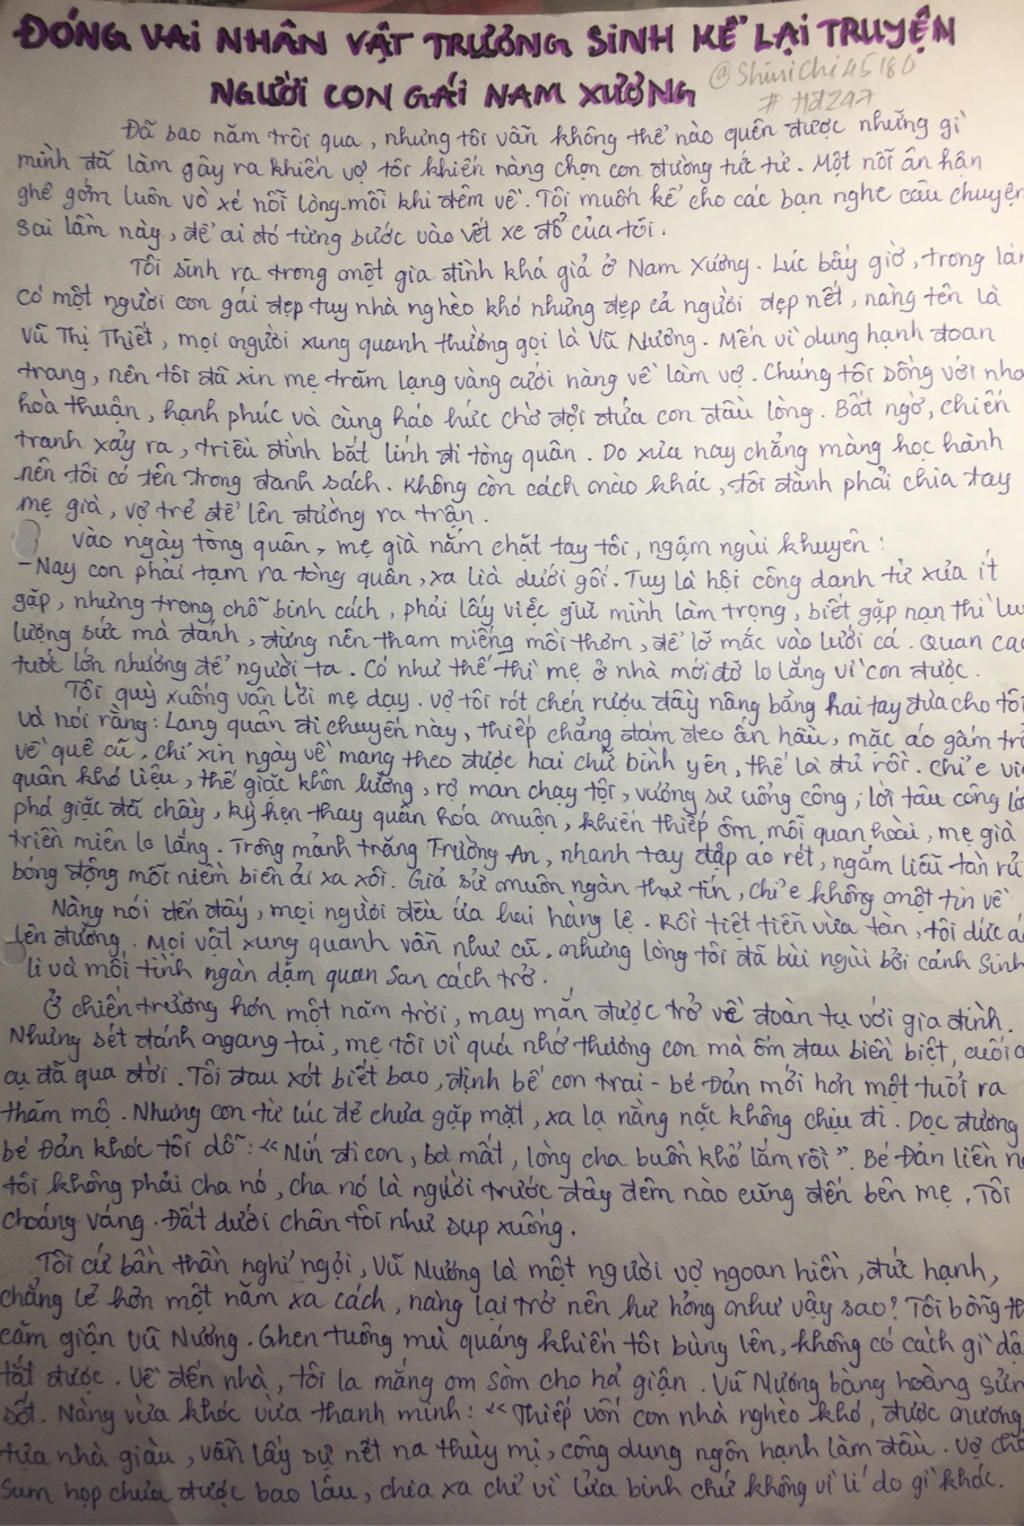 ĐÓNG VAI NHÂN VẬT TRƯƠNG SINH KỂ LẠI TRUYỆN
NGƯỜI CON GÁI NAM XƯƠNG
@Shinichi45180
# Hd247
Đã bao năm trôi qua, nhưng tôi vẫn không thể nào quên được những gì
mình đã làm gây ra khiến vợ tôi khiến nàng chọn con đường tức tử. Một nỗi ân hận
ghê gớm luôn vò xé nỗi lòng mỗi khi đêm về. Tôi muốn kể cho các bạn nghe câu chuyện
sai lầm này, để ai đó từng bước vào vết xe đổ của tôi.
Tôi sinh ra trong một gia đình khá giả ở Nam Xương. Lúc bấy giờ, trong làn
có một người con gái đẹp tuy nhà nghèo khó nhưng đẹp cả người đẹp nết, nàng tên là
Vũ Thị Thiết, mọi người xung quanh thường gọi là Vũ Nương. Mến vì dung hạnh đoan
trang, nên tôi đã xin mẹ trăm lạng vàng cưới nàng về làm vợ. Chúng tôi sống với nha
hoà thuận, hạnh phúc và cùng háo hức chờ đợi đứa con đầu lòng. Bất ngờ, chiến
tranh xảy ra, triều đình bắt lính đi tòng quân. Do xưa nay chẳng màng học hành
nên tôi có tên trong danh sách. Không còn cách nào khác, tôi đành phải chia tay
mẹ già, vợ trẻ để lên đường ra trận.
Vào ngày tòng quân, mẹ già nắm chặt tay tôi, ngậm ngùi khuyên:
- Nay con phải tạm ra tòng quân, xa lìa dưới gối. Tuy là hội công danh từ xưa ít
gặp, nhưng trong chỗ binh cách, phải lấy việc giữ mình làm trọng, biết gặp nạn thì lu
lượng sức mà đánh, đừng nên tham miếng mồi thơm, để lỡ mắc vào lưới cá. Quan cao
tước lớn nhường để người ta. Có như thế thì mẹ ở nhà mới đỡ lo lắng vì con được.
Tôi quỳ xuống vâng lời mẹ dạy. Vợ tôi rót chén rượu đầy nâng bằng hai tay đưa cho tôi
và nói rằng: Lang quân đi chuyến này, thiếp chẳng dám đeo ấn hầu, mặc áo gấm trở
về quê cũ, chỉ xin ngày về mang theo được hai chữ bình yên, thế là đủ rồi. Chỉ e việ
quân khó liệu, thế giặc khôn lường, rợ man chạy tội, vương sư uổng công, lời tâu công lớ
phá giặc đã chầy, kỳ hẹn thay quân hóa muộn, khiến thiếp ôm mối quan hoài, mẹ già
triền miên lo lắng. Trông mảnh trăng Trường An, nhanh tay đập áo rét, ngắm liễu tàn rủ
bóng động mỗi niềm biên ải xa xôi. Giả sử muôn ngàn thư tín, chỉ e không một tin về
Nàng nói đến đấy, mọi người đều ứa hai hàng lệ. Rồi tiệt tiễn vừa tàn, tôi dứt á
lên đường. Mọi vật xung quanh vẫn như cũ, nhưng lòng tôi đã bùi ngùi bởi cảnh sinh
li và mối tình ngàn dặm quan san cách trở.
Ở chiến trường hơn một năm trời, may mắn được trở về đoàn tụ với gia đình.
Nhưng sét đánh ngang tai, mẹ tôi vì quá nhớ thương con mà ốm đau biền biệt, cuối c
cụ đã qua đời. Tôi đau xót biết bao, định bế con trai - bé Đản mới hơn một tuổi ra
thăm mộ. Nhưng con từ lúc đẻ chưa gặp mặt, xa lạ nằng nặc không chịu đi. Dọc đường
bé Đản khóc tôi dỗ: "Nín đi con, bà mất, lòng cha buồn khổ lắm rồi". Bé Đản liền n
tôi không phải cha nó, cha nó là người trước đây đêm nào cũng đến bên mẹ. Tôi
choáng váng. Đất dưới chân tôi như sụp xuống.
Tôi cứ bần thần nghĩ ngợi, Vũ Nương là một người vợ ngoan hiền, đức hạnh,
chẳng lẽ hơn một năm xa cách, nàng lại trở nên hư hỏng như vậy sao? Tôi bỗng th
căm giận Vũ Nương. Ghen tuông mù quáng khiến tôi bùng lên, không có cách gì dậ
tắt được. Về đến nhà, tôi la mắng om sòm cho hả giận. Vũ Nương bàng hoàng sửn
sốt. Nàng vừa khóc vừa thanh minh: "Thiếp vốn con nhà nghèo khó, được nương
tựa nhà giàu, vẫn lấy sự nết na thùy mị, công dung ngôn hạnh làm đầu. Vợ chồ
sum họp chưa được bao lâu, chia xa chỉ vì lửa binh chứ không vì lí do gì khác.